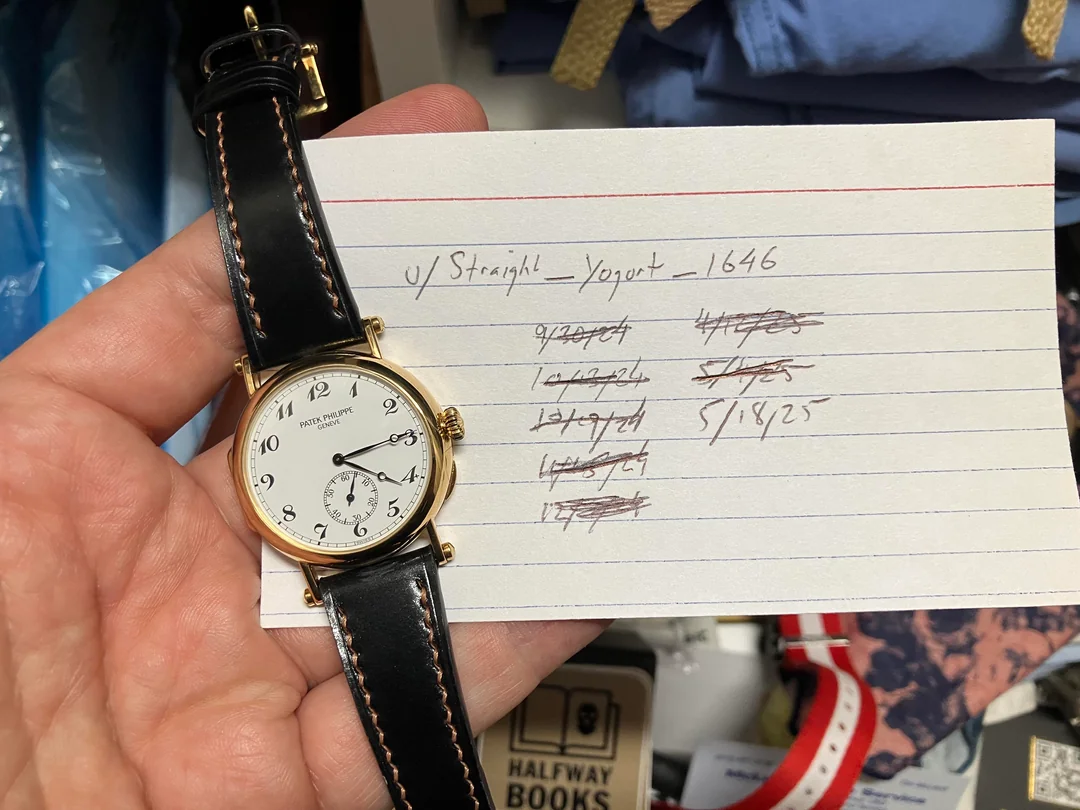 u/Straight_Yogurt_1646
9/30/24
4/12/25
10/13/24
5/4/25
5/18/25
PATEK PHILIPPE
GENEVE
12
1
2
3
4
5
6
7
8
9
10
11
60
10
20
30
40
50
HALFWAY
BOOKS